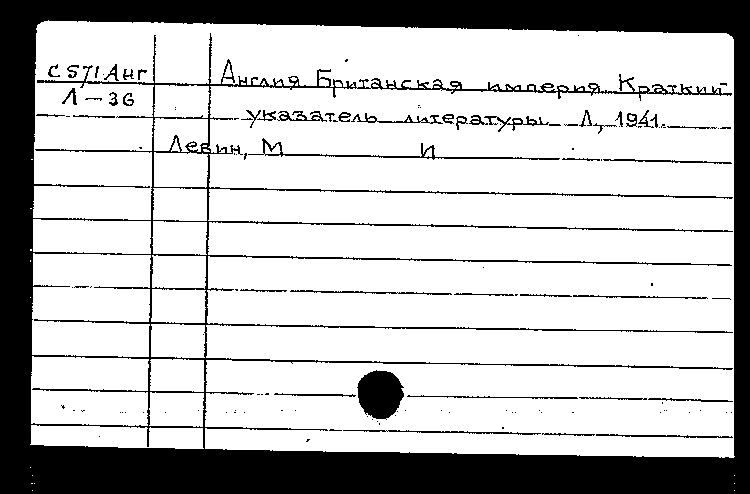 С571Анг Англия Британская империя Краткий
Л-36 указатель литературы Л, 1941.
Левин, М И